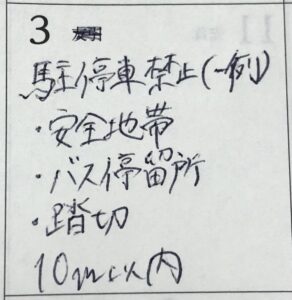 3
駐停車禁止(一例)
・安全地帯
・バス停留所
・踏切
10m以内